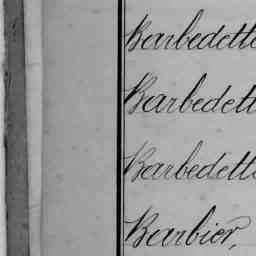 Barbedette
Barbedett
Barbedette
Barbier,